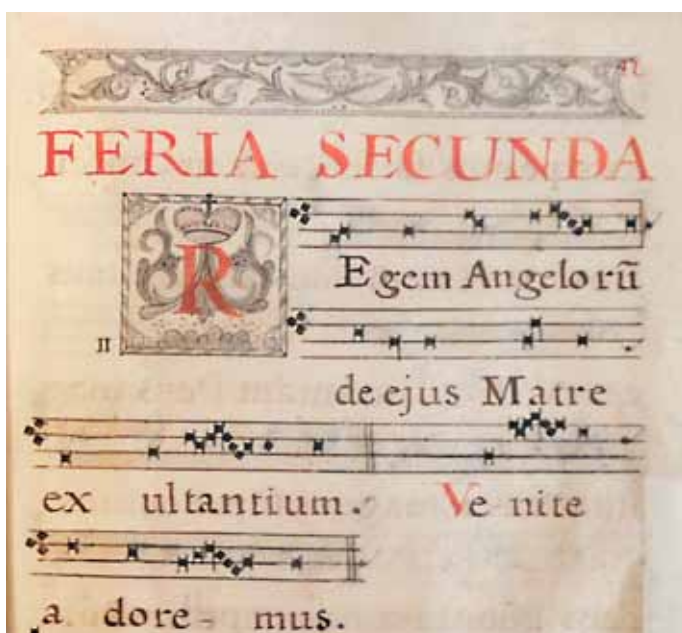 42
FERIA SECUNDA
REgem Angelorũ
II
de ejus Matre
ex ultantium. Ve nite
a dore- mus.